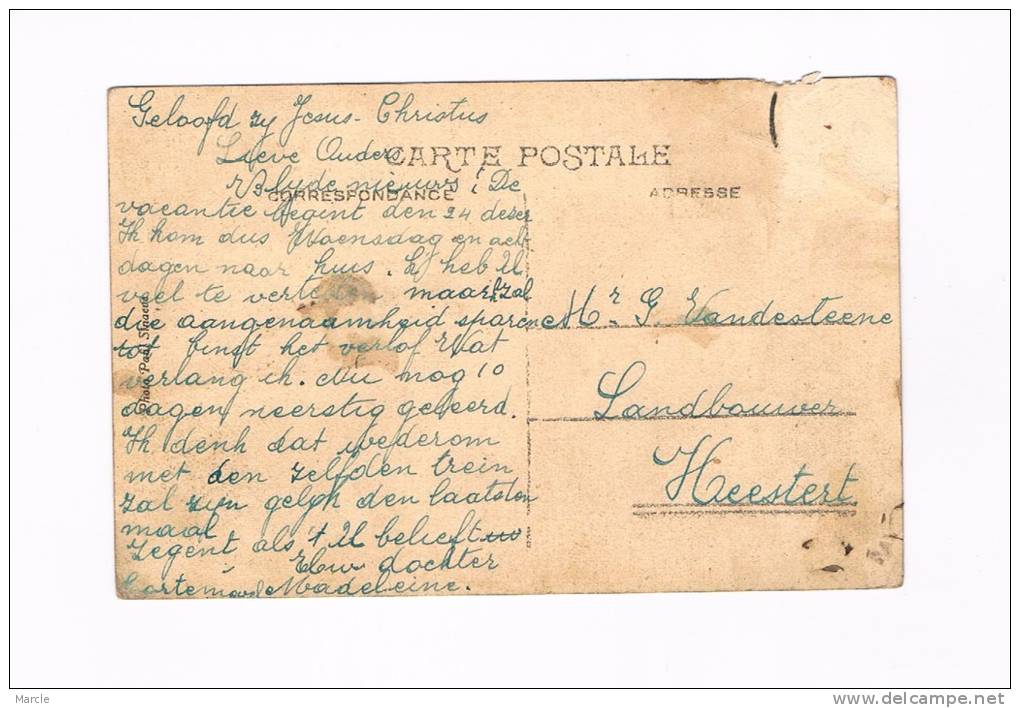 Geloofd zy Jesus-Christus
Lieve Ouders
CARTE POSTALE
Blijde nieuws! De
CORRESPONDANCE
vacantie begint den 24 dezer
Ik kom dus Woensdag en acht
dagen naar huis. Ik heb U
veel te vertellen maar k zal
die aangenaamheid sparen
tot binst het verlof Wat
verlang ik. Nu nog 10
dagen neerstig geleerd.
Ik denk dat wederom
met den zelfden trein
zal zyn gelyk den laatsten
maal
Zegent als 't U belieft uw
Uw dochter
Cortemarck Madeleine.
Photo Paul
ADRESSE
Mr G. Vandesteene
Landbouwer
Heestert
Marcle
www.delcampe.net